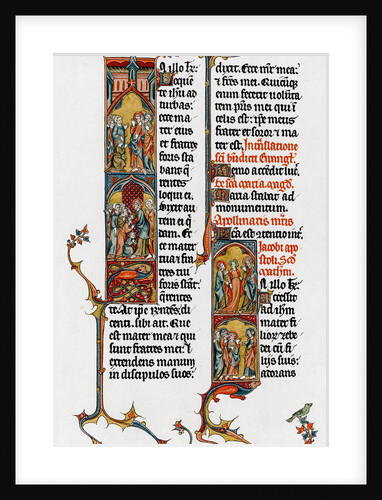 N illo tr̄.
Loquen
te ihu ad
turbas:
ecce ma
ter eius
et fratres
foris sta
bant q̄
rentes
loqui ei.
Dixit au
tem ei q̄
dam. Ec
ce mater
tua et frēs
tui
foris stāt
querentes
te. At ipe rn̄dēs, di
centi sibi ait. Que
est mater mea: et qui
sunt fratres mei: Et
extendens manum
in discipulos suos:
dixit. Ecce mr̄ mea:
et frēs mei. Quicūq;
enim fecerit volūta
tem pr̄is mei qui ī
celis est: ipse meus
frater et soror et ma
ter est. In trāslatione
sc̄i bn̄dicti
Nemo accēdit luc̄.
Maria stabat ad
monumentum.
Apollinaris mr̄is
cta est ꝯtentio int̄.
Jacobi apo
stoli. Scd̄
math̄m.
N illo tr̄.
Accessit
ad ihm
mater fi
lior ze be
dei cū fi
liis suis:
adorans